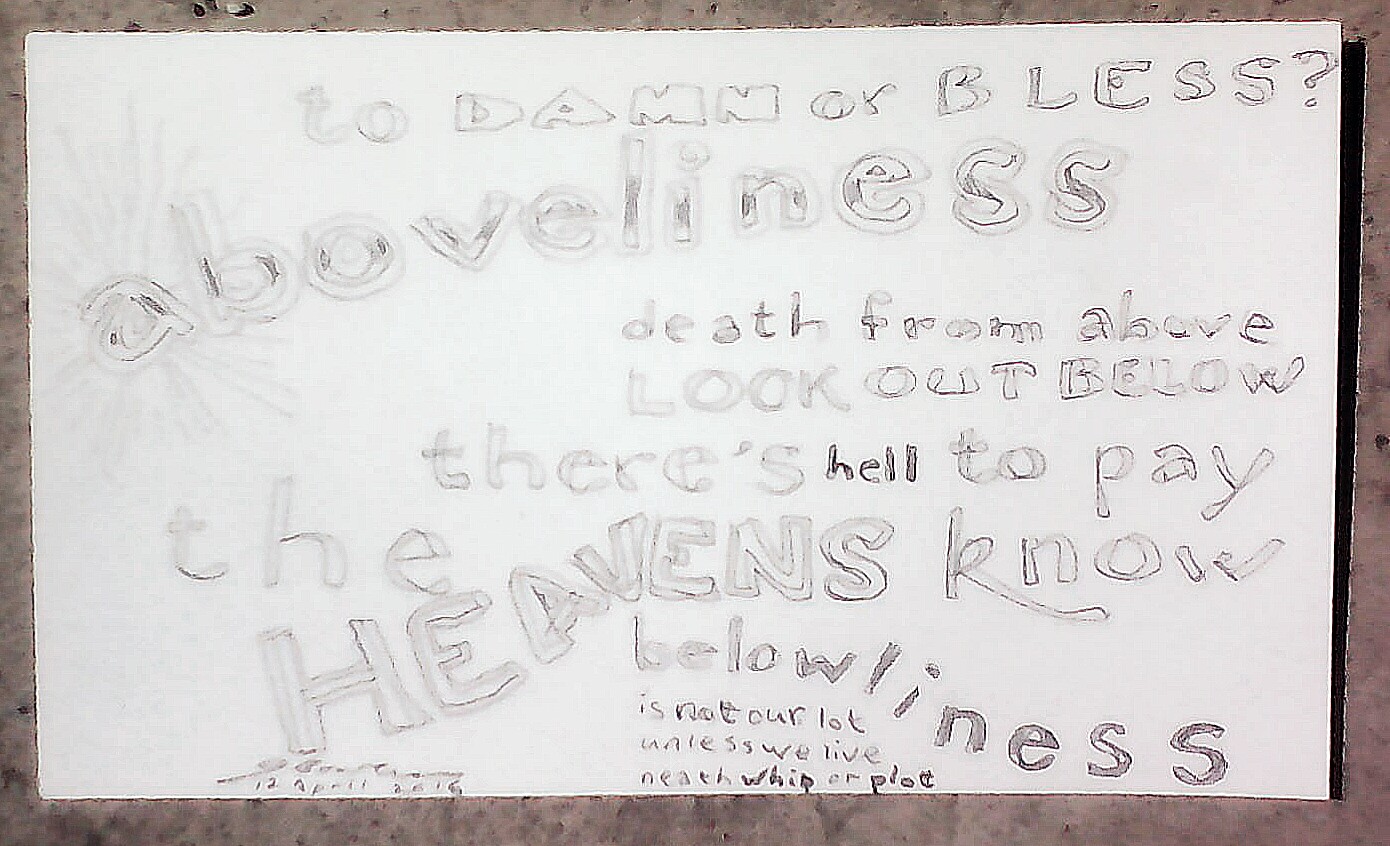 to DAMN or BLESS?
aboveliness
death from above
LOOK OUT BELOW
there's hell to pay
the HEAVENS know
belowliness
is not our lot
unless we live
neath whip or plot
12 April 2016